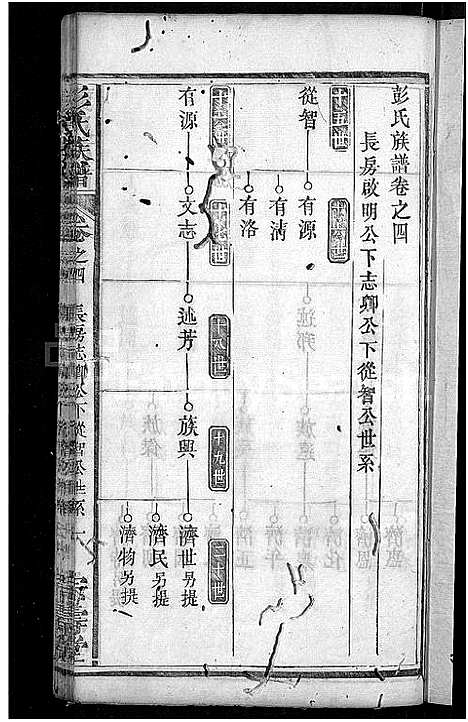 彭氏族譜卷之四
長房啟明公下志卿公下從智公世系
十五世
從智
十六世
有源
有淸
有洛
十六世
有源
十七世
文志
十八世
述芳
十九世
族興
二十世
濟世另提
濟民另提
濟物另提
彭氏族譜
卷之四
長房志卿公下從智公世系